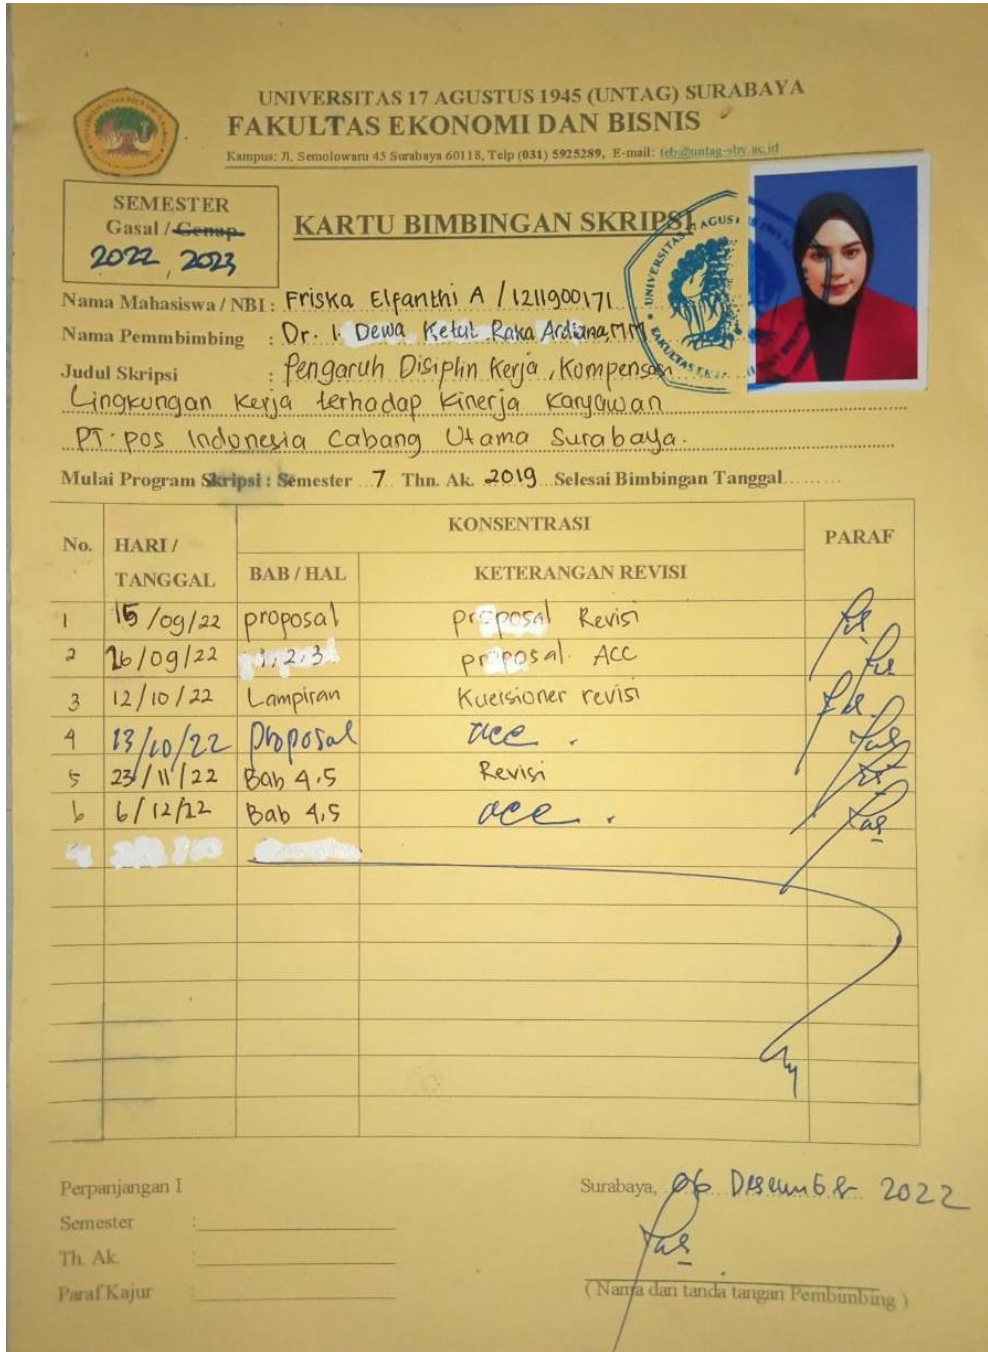 UNIVERSITAS 17 AGUSTUS 1945 (UNTAG) SURABAYA
FAKULTAS EKONOMI DAN BISNIS
Kampus: Jl. Semolowaru 45 Surabaya 60118, Telp (031) 5925289, E-mail: feb@untag-sby.ac.id
SEMESTER
Gasal / Genap
2022, 2023
KARTU BIMBINGAN SKRIPSI
Nama Mahasiswa / NBI : Friska Elfanthi A / 1211900171
Nama Pemmbimbing : Dr. I. Dewa Ketut Raka Ardiana, MM
Judul Skripsi : Pengaruh Disiplin Kerja, Kompensasi
Lingkungan Kerja terhadap Kinerja Karyawan
PT. pos Indonesia Cabang Utama Surabaya.
Mulai Program Skripsi : Semester 7 Thn. Ak. 2019 Selesai Bimbingan Tanggal
No. HARI / TANGGAL KONSENTRASI PARAF
BAB / HAL KETERANGAN REVISI
1 15/09/22 proposal proposal Revisi
2 26/09/22 1, 2, 3 proposal. ACC
3 12/10/22 Lampiran Kuersioner revisi
4 13/10/22 proposal acc.
5 23/11/22 Bab 4,5 Revisi
6 6/12/22 Bab 4,5 acc.
Perpanjangan I
Semester :
Th. Ak. :
Paraf Kajur :
Surabaya, 06 Desember 2022
( Nama dan tanda tangan Pembimbing )